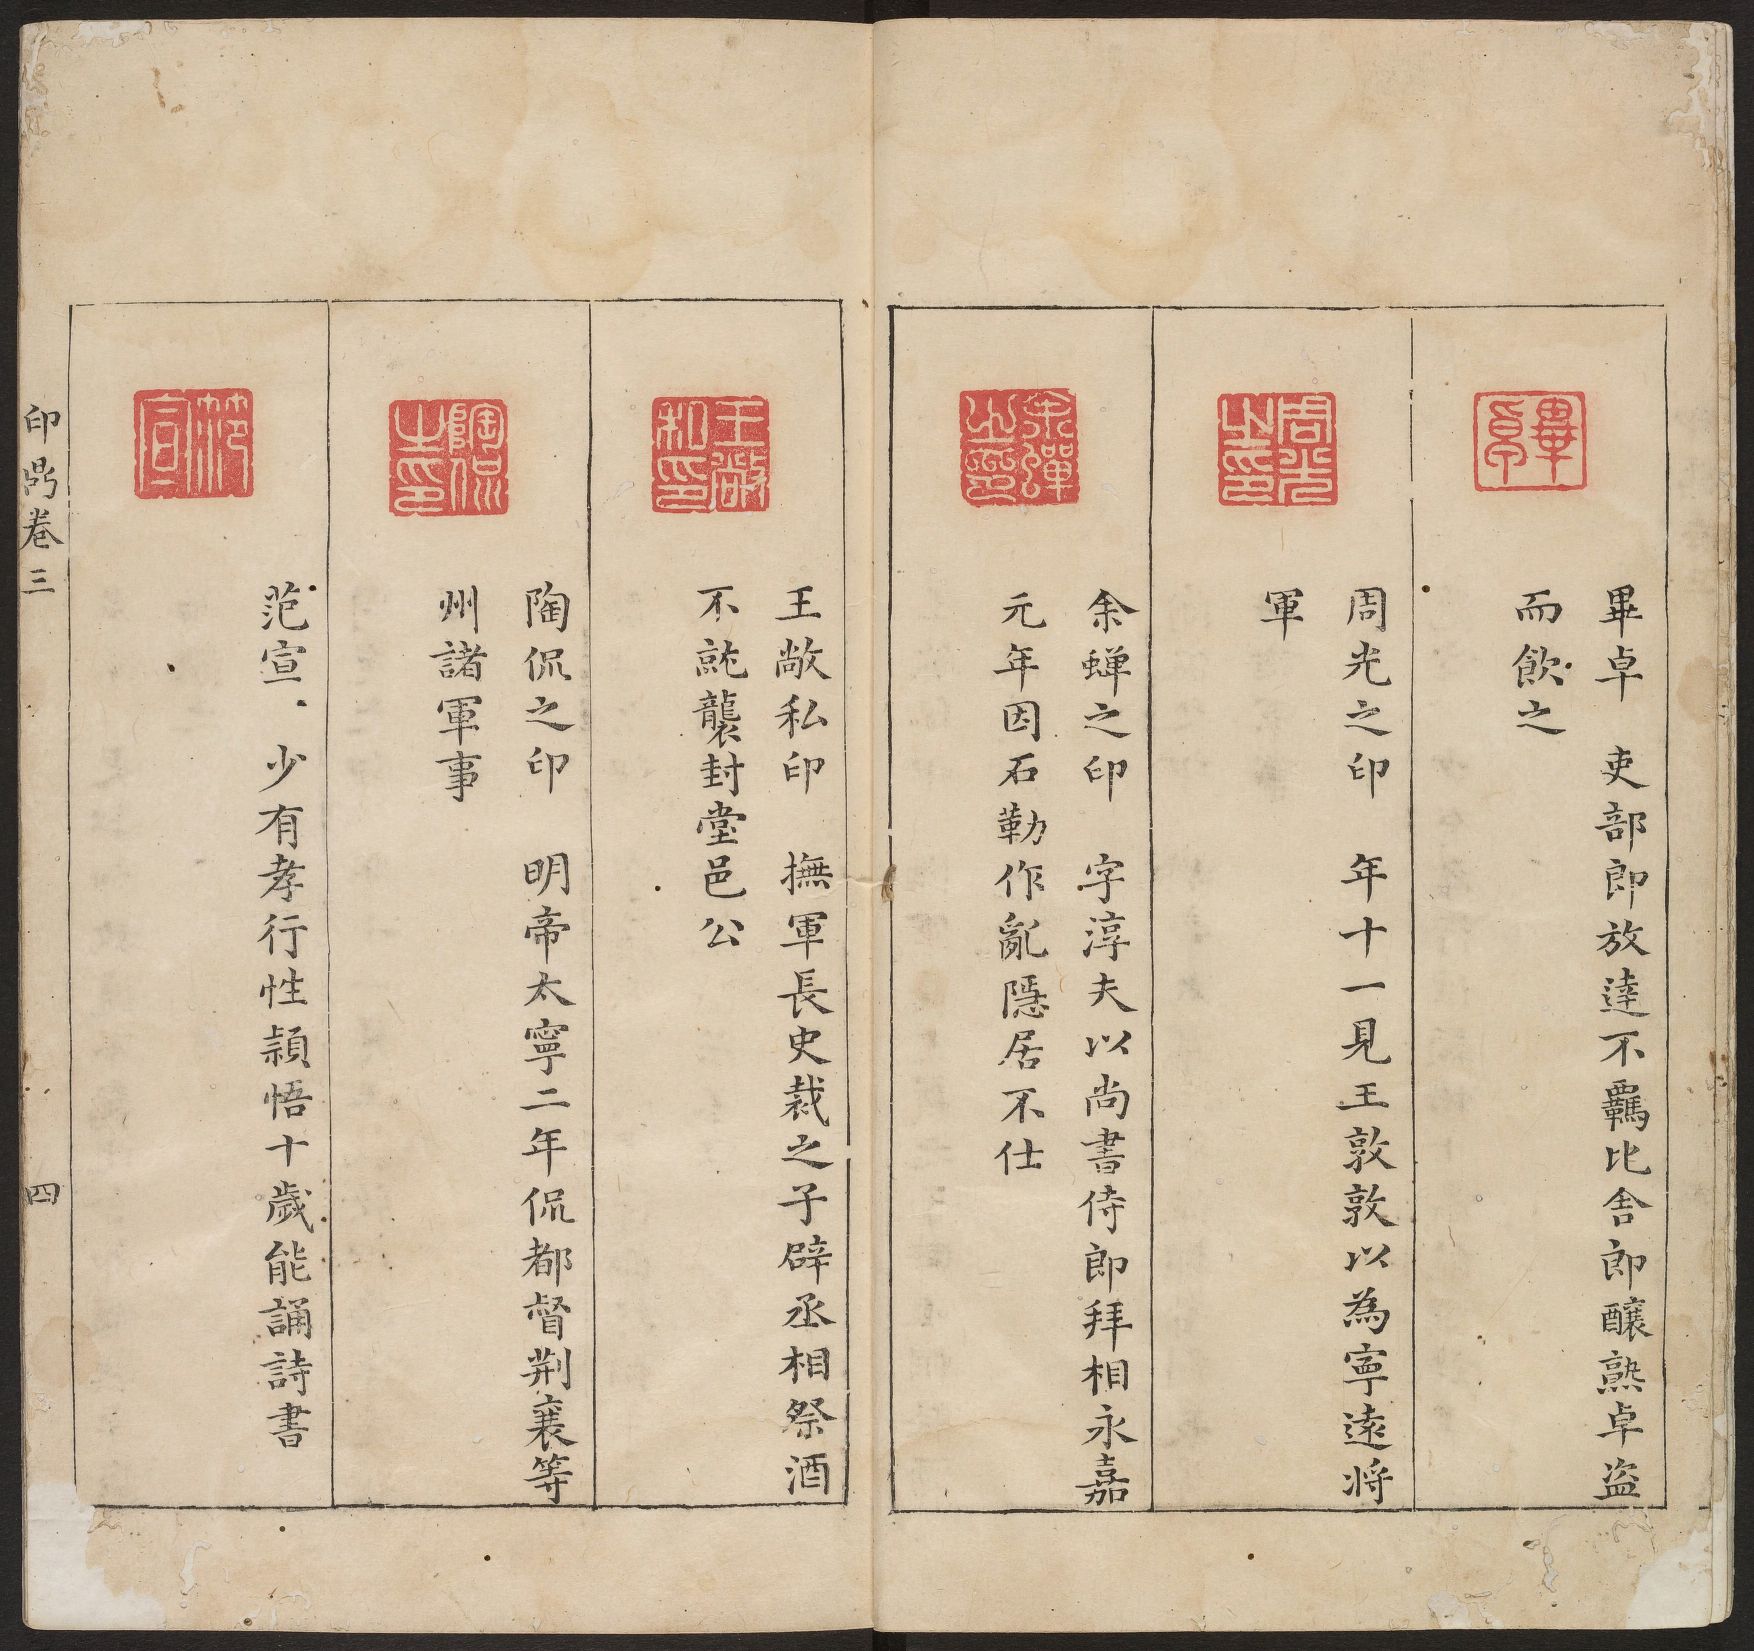 畢卓
畢卓　吏部郎放達不羈比舍郎釀熟卓盜
而飲之
周光之印
周光之印　年十一見王敦敦以為寧遠將
軍
余蟬之印
余蟬之印　字淳夫以尚書侍郎拜相永嘉
元年因石勒作亂隱居不仕
王敞私印
王敞私印　撫軍長史裁之子辟丞相祭酒
不就襲封堂邑公
陶侃之印
陶侃之印　明帝太寧二年侃都督荆襄等
州諸軍事
范宣
范宣　少有孝行性穎悟十歲能誦詩書
印鼎卷三
四